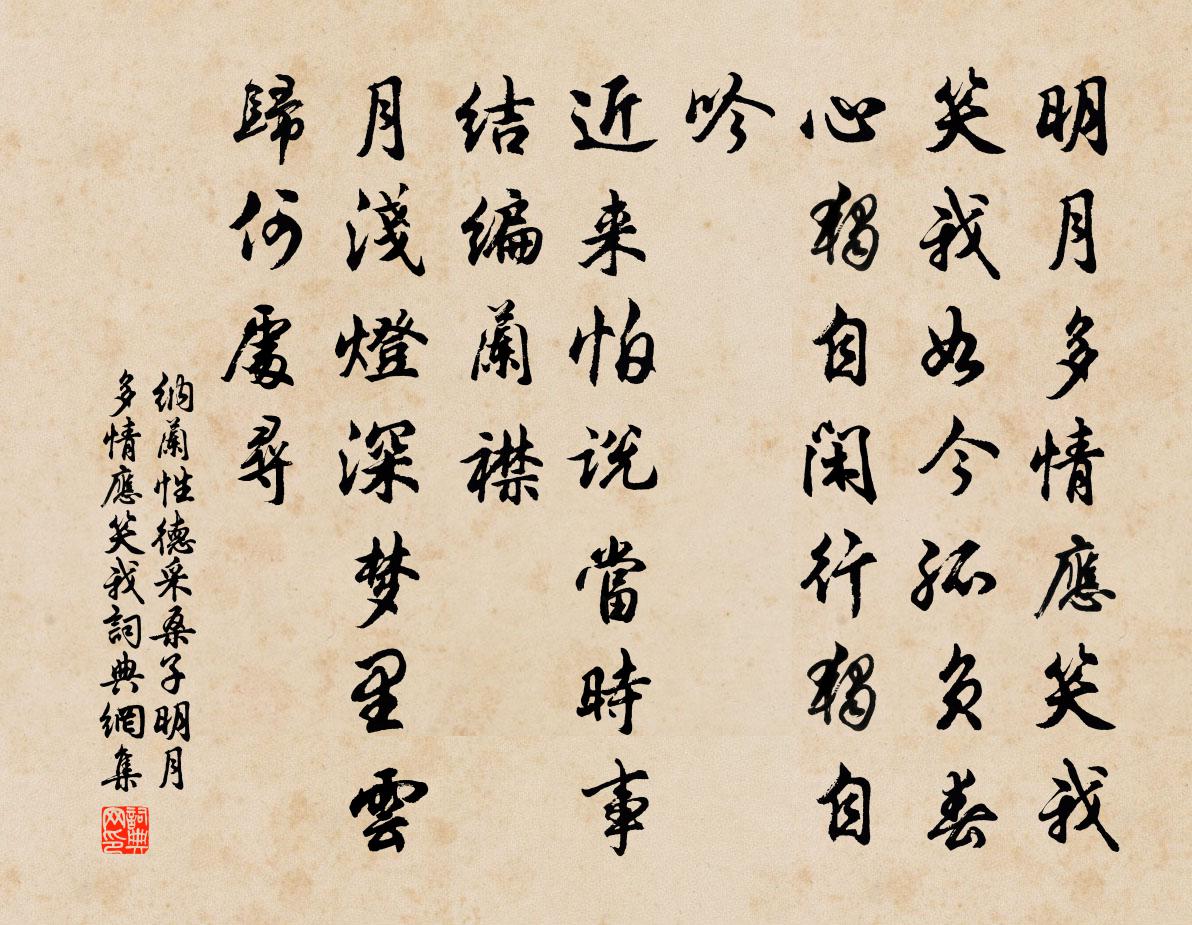 明月多情應笑我
笑我如今孤负春
心独自闲行独自
吟
近来怕说當時事
结编蘭襟
月淺燈深梦里雲
歸何處尋
纳蘭性德采桑子明月
多情應笑我詞典網集
詞典
网印